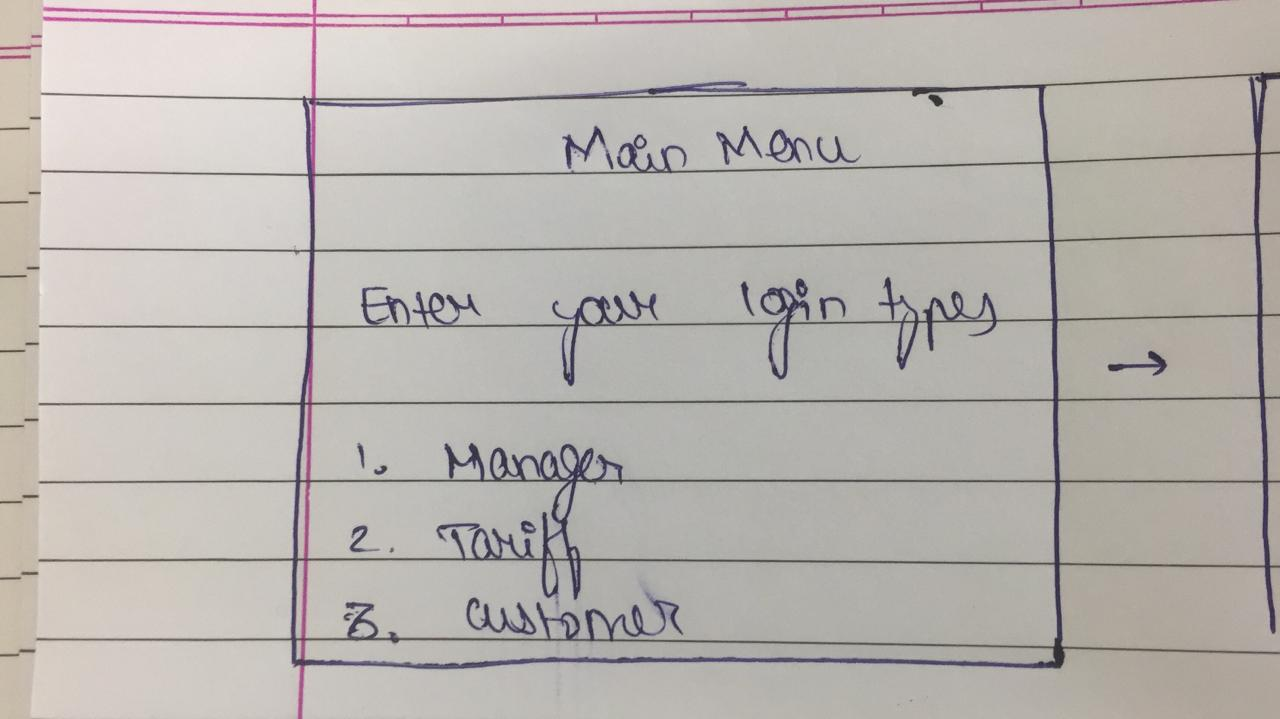 Main Menu
Enter your login types
1. Manager
2. Tariff
3. Customer